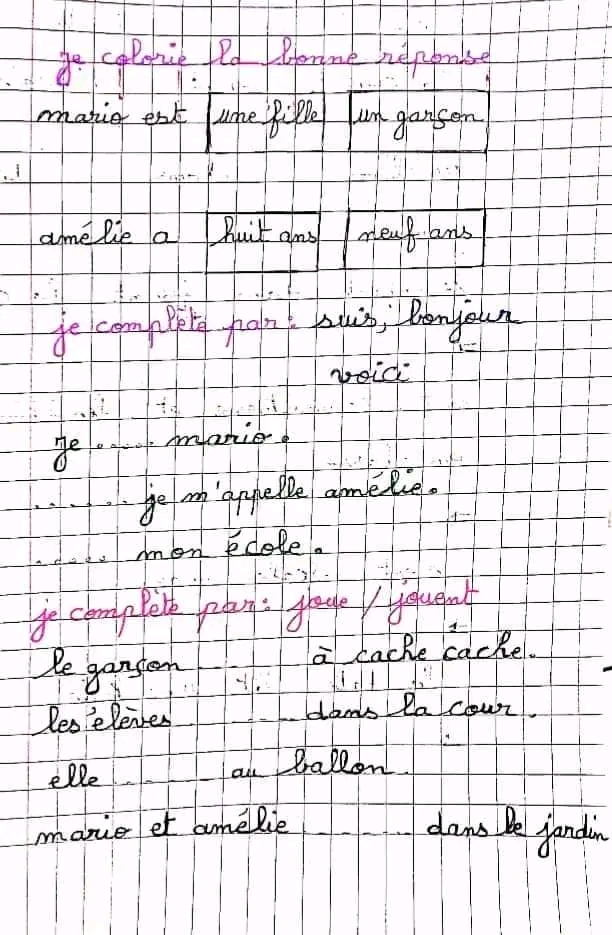 je colorie la bonne réponse
mario est une fille un garçon
amélie a huit ans neuf ans
je complète par: suis, bonjour
voici
je ..... mario.
...... je m'appelle amélie.
..... mon école.
je complète par: joue / jouent
le garçon ..... à cache cache.
les élèves ..... dans la cour.
elle ..... au ballon.
mario et amélie ..... dans le jardin